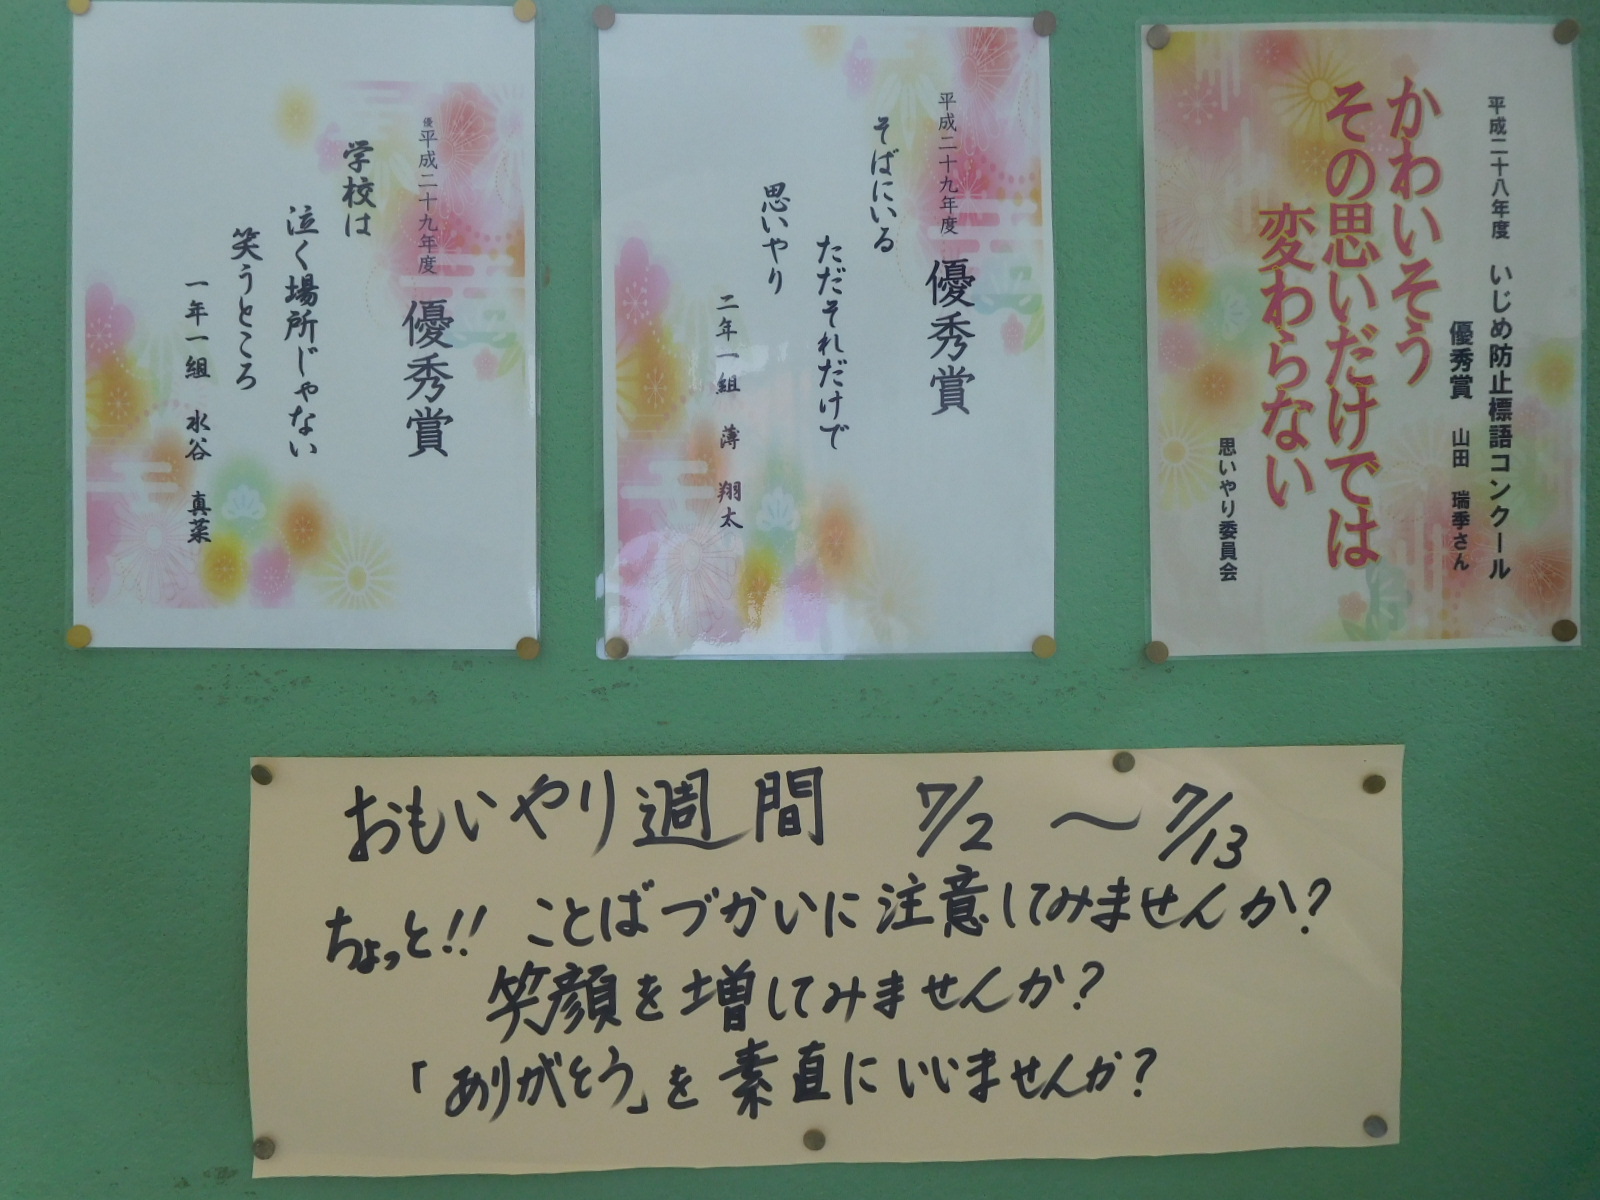 優
平成二十九年度 優秀賞
学校は
泣く場所じゃない
笑うところ
一年一組 水谷 真菜
平成二十九年度 優秀賞
そばにいる
ただそれだけで
思いやり
二年一組 薄 翔太
平成二十八年度 いじめ防止標語コンクール
優秀賞 山田 瑞季さん
かわいそう
その思いだけでは
変わらない
思いやり委員会
おもいやり週間 7/2 〜 7/13
ちょっと!! ことばづかいに注意してみませんか?
笑顔を増してみませんか?
「ありがとう」を素直にいいませんか?